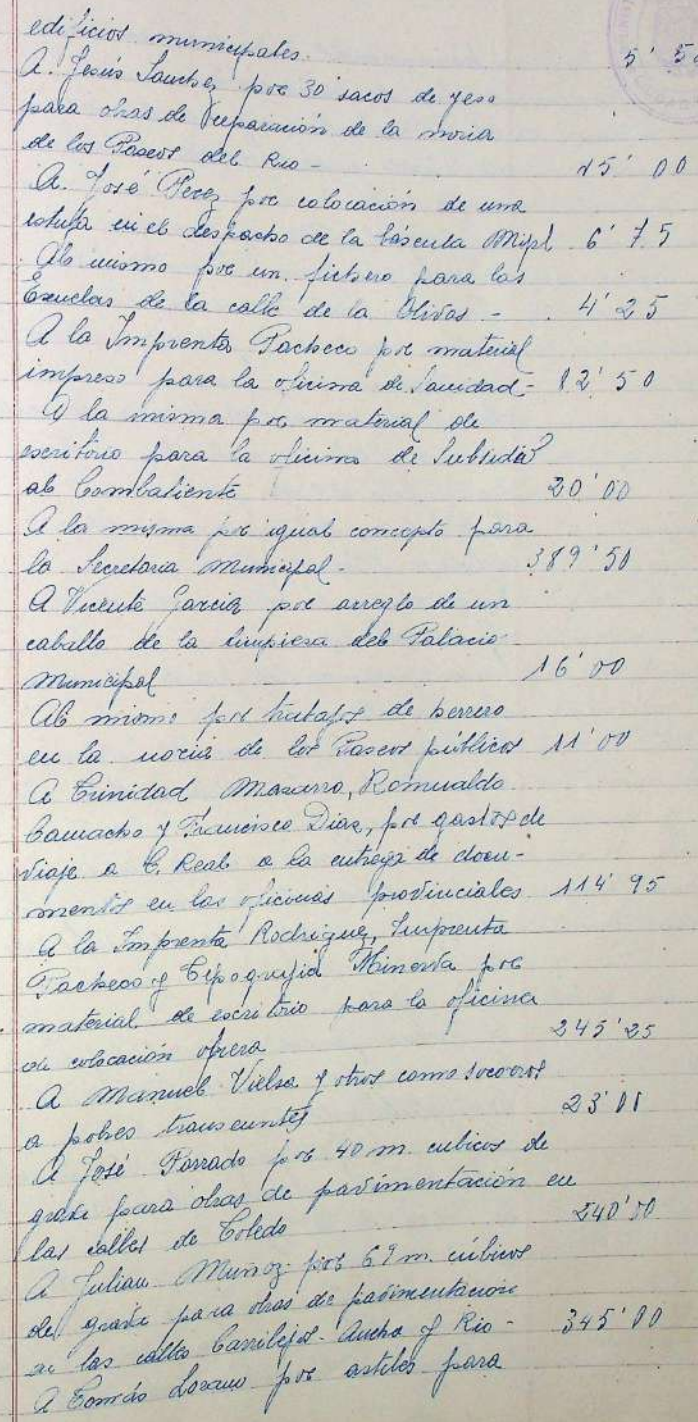 edificios municipales. 5'50
A. Jesús Sanchez por 30 sacos de yeso
para obras de reparación de la noria
de los Paseos del Rio - 15'00
A. José Perez por colocación de una
estufa en el despacho de la báscula Mipl 6'75
Al mismo por un fichero para las
Escuelas de la calle de la Olivas. - 4'25
A la Imprenta Pacheco por material
impreso para la oficina de Sanidad - 82'50
A la misma por material de
escritorio para la oficina de Subsidio
al Combatiente 20'00
A la misma por igual concepto para
la Secretaria Municipal. 389'50
A Vicente Garcia por arreglo de un
caballo de la limpiesa del Palacio
Municipal 16'00
Al mismo por trabajos de herrero
en la noria de los Paseos públicos 11'00
A Trinidad Mazarro, Romualdo
Camacho y Francisco Diaz, por gastos de
viaje a C. Real a la entrega de docu-
mentos en las oficinas provinciales 114'95
A la Imprenta Rodriguez, Imprenta
Pacheco y Tipografia Minerva por
material de escritorio para la oficina
de colocación obrera 245'25
A Manuel Vielsa y otros como socorros
a pobres transeuntes 23'00
A José Parrado por 40 m. cubicos de
grava para obras de pavimentación en
las calles de Toledo 240'00
A Julian Muñoz por 69 m. cúbicos
de grava para obras de pavimentacion
de las calles Carrilejos - Ancha y Rio - 345'00
A Tomás Lozano por astiles para